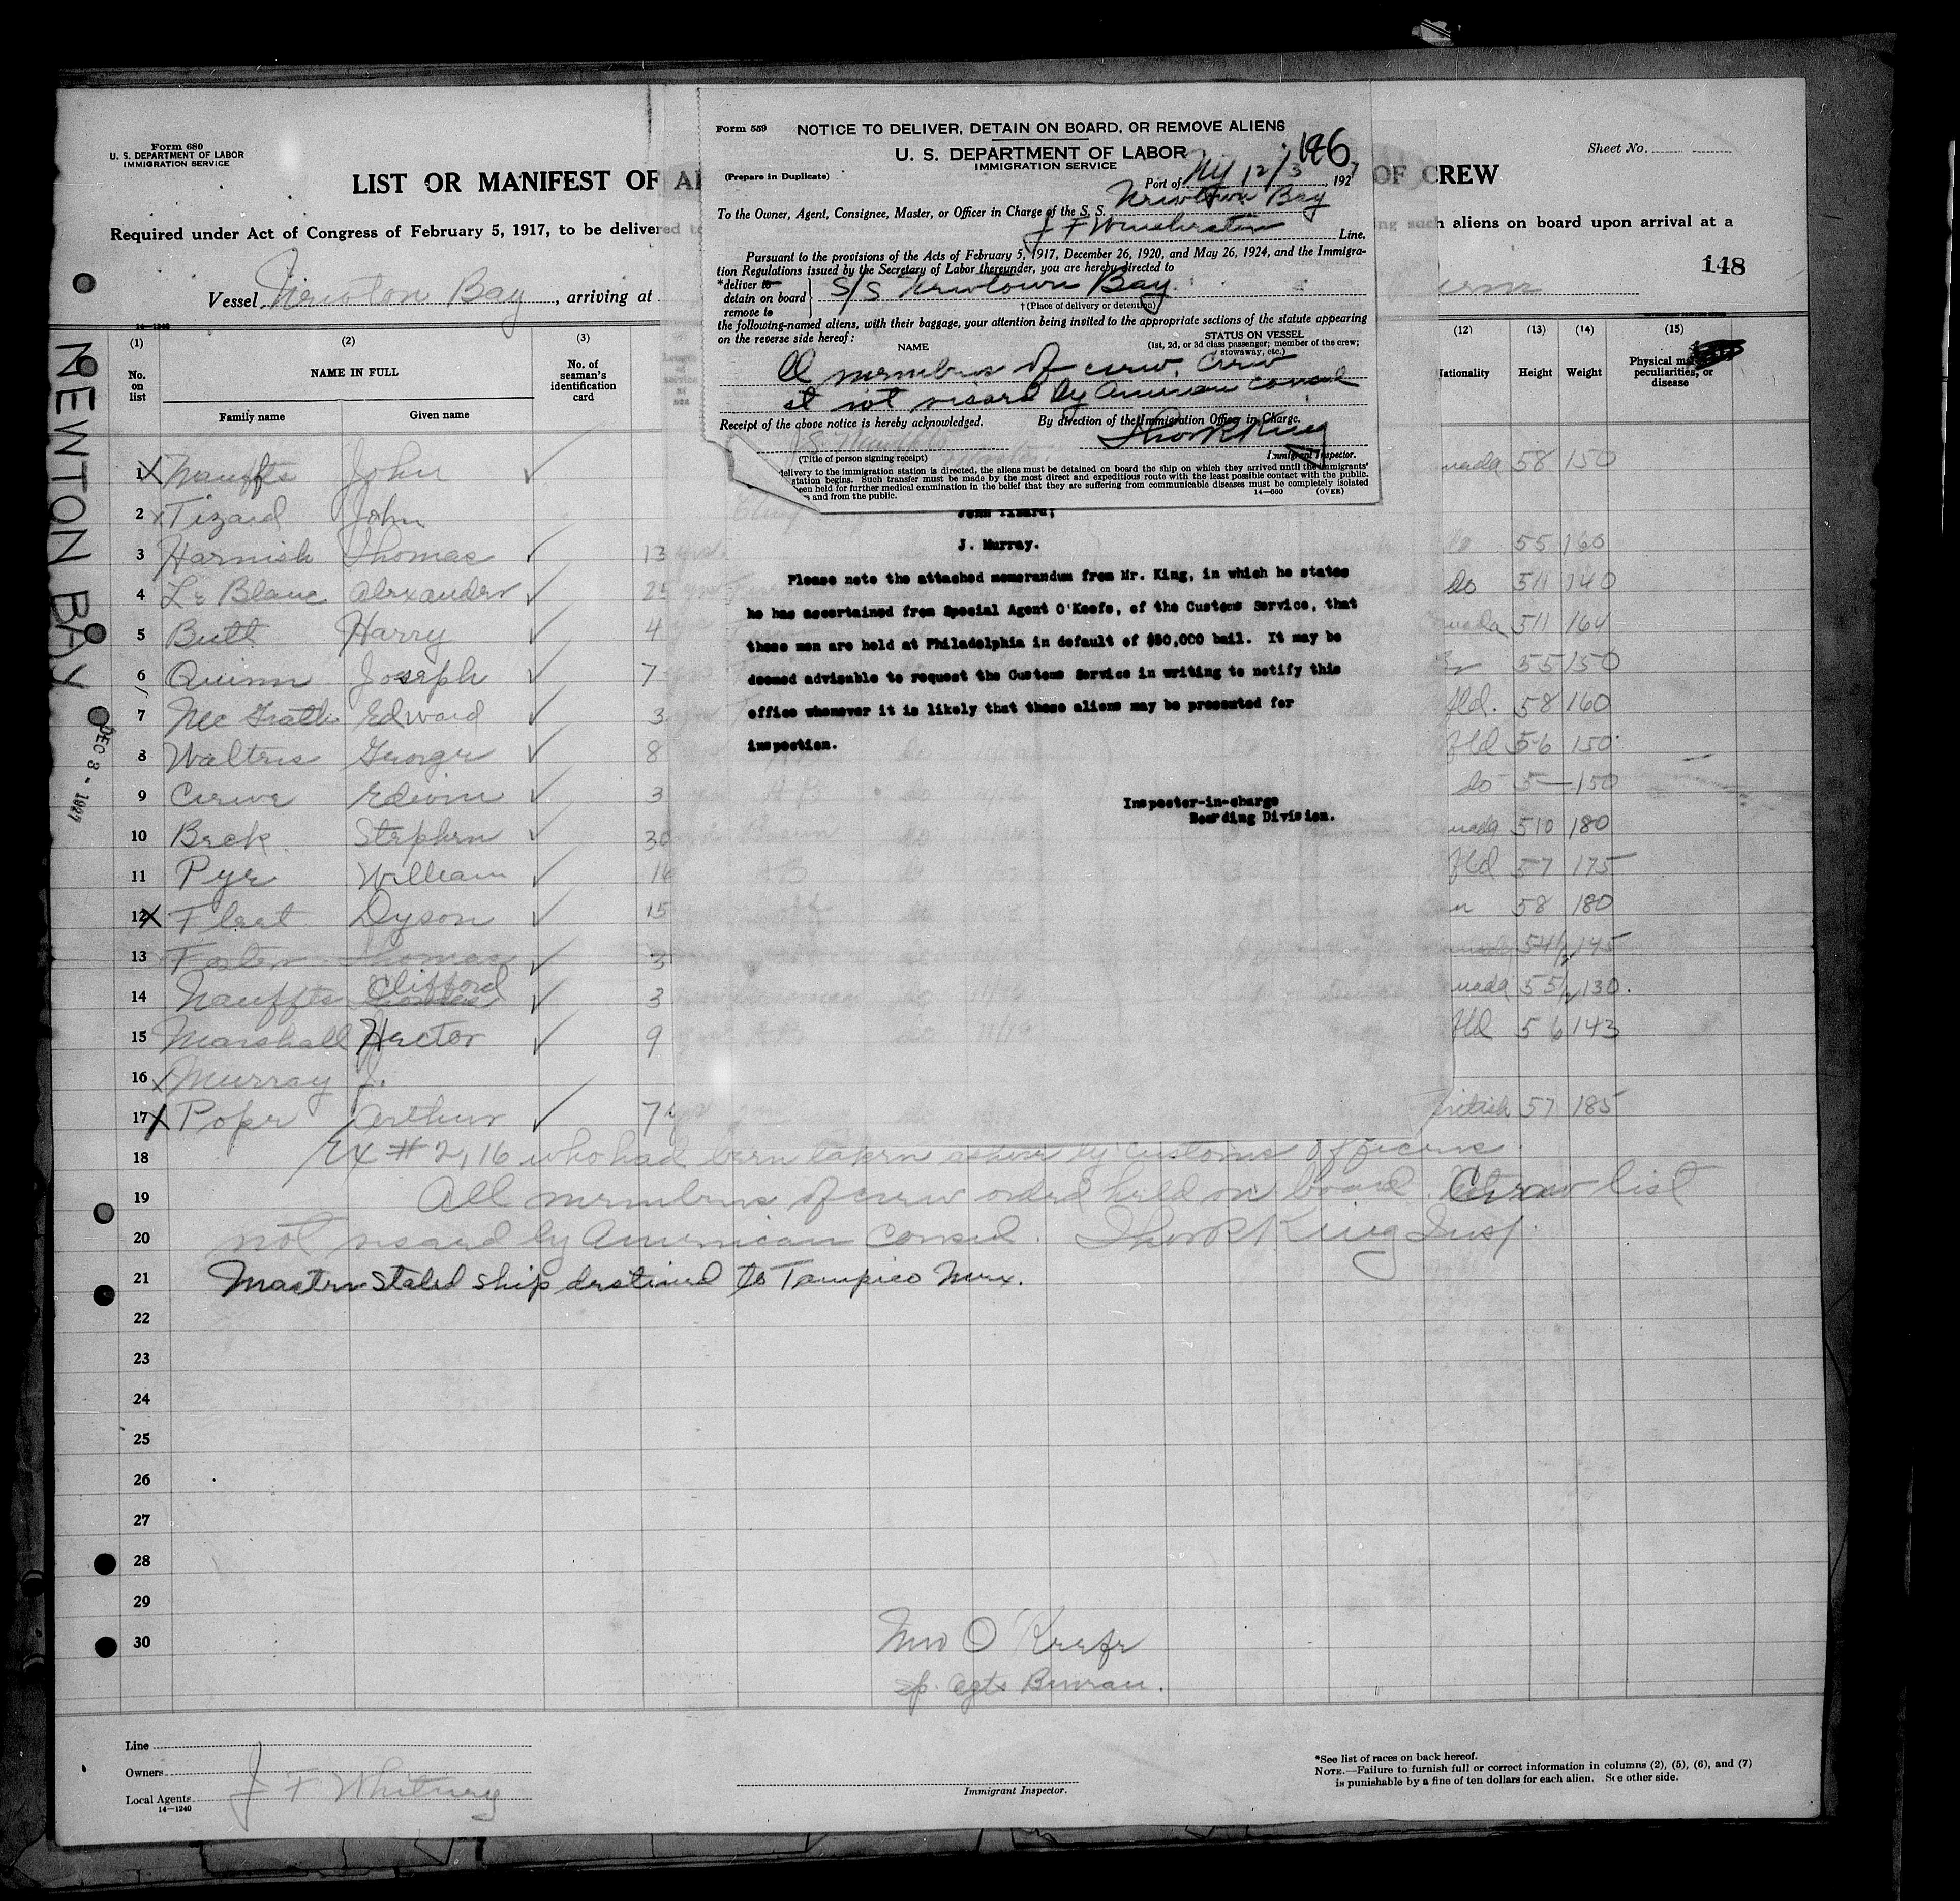 Form 680
U. S. DEPARTMENT OF LABOR
IMMIGRATION SERVICE
LIST OR MANIFEST OF
OF CREW
Sheet No.
Required under Act of Congress of February 5, 1917, to be delivered
such aliens on board upon arrival at a
148
Vessel Newton Bay, arriving at
Form 559 NOTICE TO DELIVER, DETAIN ON BOARD, OR REMOVE ALIENS
186
U. S. DEPARTMENT OF LABOR
IMMIGRATION SERVICE
(Prepare in Duplicate)
Port of NY 12/3, 1927
To the Owner, Agent, Consignee, Master, or Officer in Charge of the S. S. Newtown Bay
J F Line.
Pursuant to the provisions of the Acts of February 5, 1917, December 26, 1920, and May 26, 1924, and the Immigra-
tion Regulations issued by the Secretary of Labor thereunder, you are hereby directed to
*deliver to
detain on board
remove to
S/S Newtown Bay
†(Place of delivery or detention)
the following-named aliens, with their baggage, your attention being invited to the appropriate sections of the statute appearing
on the reverse side hereof:
NAME
STATUS ON VESSEL
(1st, 2d, or 3d class passenger; member of the crew;
stowaway, etc.)
All members of crew. Crew
st not visaed by American consul
Receipt of the above notice is hereby acknowledged. By direction of the Immigration Officer in Charge.
Thor R King
(Title of person signing receipt)
Immigrant Inspector.
delivery to the immigration station is directed, the aliens must be detained on board the ship on which they arrived until the immigrants'
station begins. Such transfer must be made by the most direct and expeditious route with the least possible contact with the public.
been held for further medical examination in the belief that they are suffering from communicable diseases must be completely isolated
and from the public.
14—660 (OVER)
John Tizard;
J. Murray.
Please note the attached memorandum from Mr. King, in which he states
he has ascertained from Special Agent O'Keefe, of the Customs Service, that
these men are held at Philadelphia in default of $50,000 bail. It may be
deemed advisable to request the Customs Service in writing to notify this
office whenever it is likely that these aliens may be presented for
inspection.
Inspector-in-charge
Boarding Division.
14—1240
(1) (2) (3) (12) (13) (14) (15)
No. on list
NAME IN FULL
Family name Given name
No. of seaman's identification card
Nationality Height Weight
Physical marks, peculiarities, or disease
NEWTON BAY
DEC 3 - 1927
1 X Nauffts John ✓ nada 58 150
2 x Tizard John
3 Harnish Thomas ✓ 13 do 55 160
4 Le Blanc Alexander ✓ 25 do 511 140
5 Butt Harry ✓ 4 nada 511 164
6 Quinn Joseph ✓ 7 55 150
7 Mc Grath Edward ✓ 3 fld. 58 160
8 Walters George ✓ 8 fld 56 150
9 Edwin ✓ 3 do 5— 150
10 Beck Stephen ✓ 30 nada 510 180
11 Pye William ✓ 16 fld 57 175
12 X Fleet Dyson ✓ 15 58 180
13 Foster Thomas ✓ 3 54½ 145
14 Nauffts Clifford ✓ 3 nada 55½ 130.
15 Marshall Hector ✓ 9 fld 56 143
16 x Murray J.
17 X Pope Arthur ✓ 7 British 57 185
18 Ex # 2, 16 who had been taken ashore by customs officers.
19 All members of crew ordered held on board. Crew list
20 not visaed by American Consul. Thor R King Insp.
21 Master stated ship destined to Tampico Mex.
22
23
24
25
26
27
28
29
30
O'Keefe
sp. Agts Bureau.
Line
Owners
Local Agents J F Whitney
14—1240
Immigrant Inspector.
*See list of races on back hereof.
NOTE.—Failure to furnish full or correct information in columns (2), (5), (6), and (7)
is punishable by a fine of ten dollars for each alien. See other side.